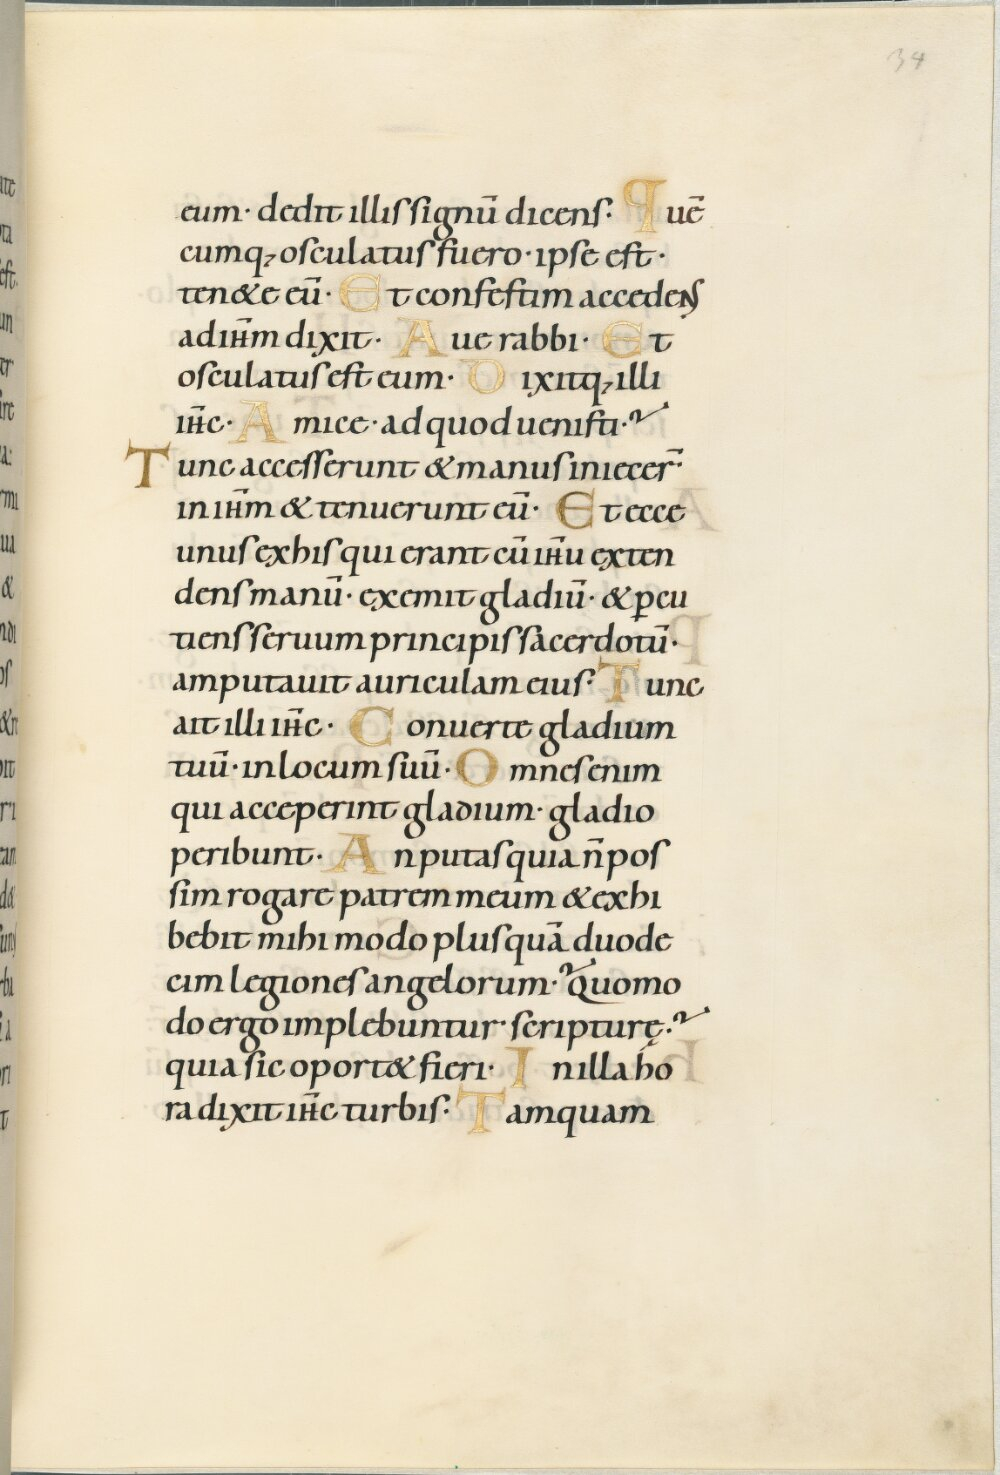 34
eum· dedit illis signū dicens· Quē
cumq; osculatus fuero· ipse est·
ten&e eū· Et confestim accedens
ad ih̅m dixit· Aue rabbi· Et
osculatus est eum· Dixitq; illi
ih̅c· Amice· ad quod uenisti·
Tunc accesserunt & manus iniecer̅·
in ih̅m & tenuerunt eū· Et ecce
unus ex his qui erant cū ih̅u exten
dens manū· exemit gladiū· & ꝑcu
tiens seruum principis sacerdotū·
amputauit auriculam eius· Tunc
ait illi ih̅c· Conuerte gladium
tuū· in locum suū· Omnes enim
qui acceperint gladium· gladio
peribunt· An putas quia n̄ pos
sim rogare patrem meum & exhi
bebit mihi modo plus quā duode
cim legiones angelorum· Quomo
do ergo implebuntur· scripturę·
quia sic oport& fieri· In illa ho
ra dixit ih̅c turbis· Tamquam